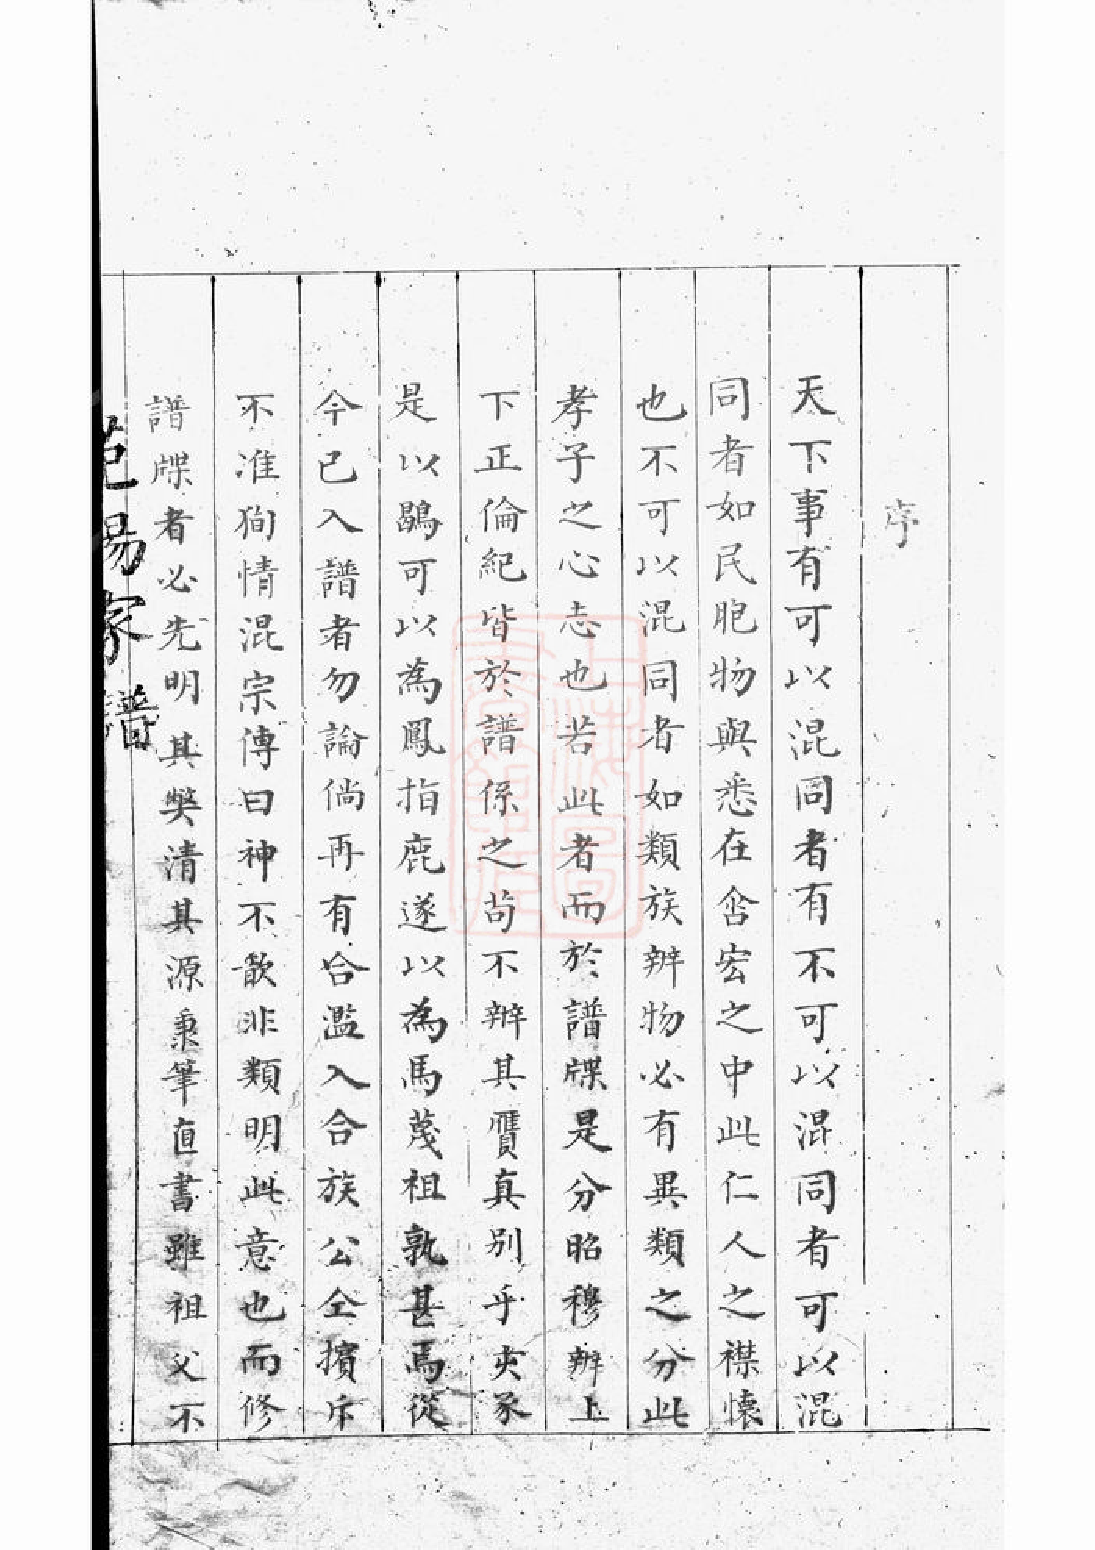 序
天下事有可以混同者有不可以混同者可以混
同者如民胞物與悉在含宏之中此仁人之襟懷
也不可以混同者如類族辨物必有異類之分此
孝子之心志也若此者而於譜牒是分昭穆辨上
下正倫紀皆於譜係之苟不辨其贋真別乎夾
是以鷃可以為鳳指鹿遂以為馬蔑祖孰甚焉從
今已入譜者勿論倘再有合濫入合族公仝擯斥
不准狥情混宗傳曰神不歆非類明此意也而修
譜牒者必先明其獘清其源秉筆直書雖祖父不
范陽家譜
上海圖書館藏